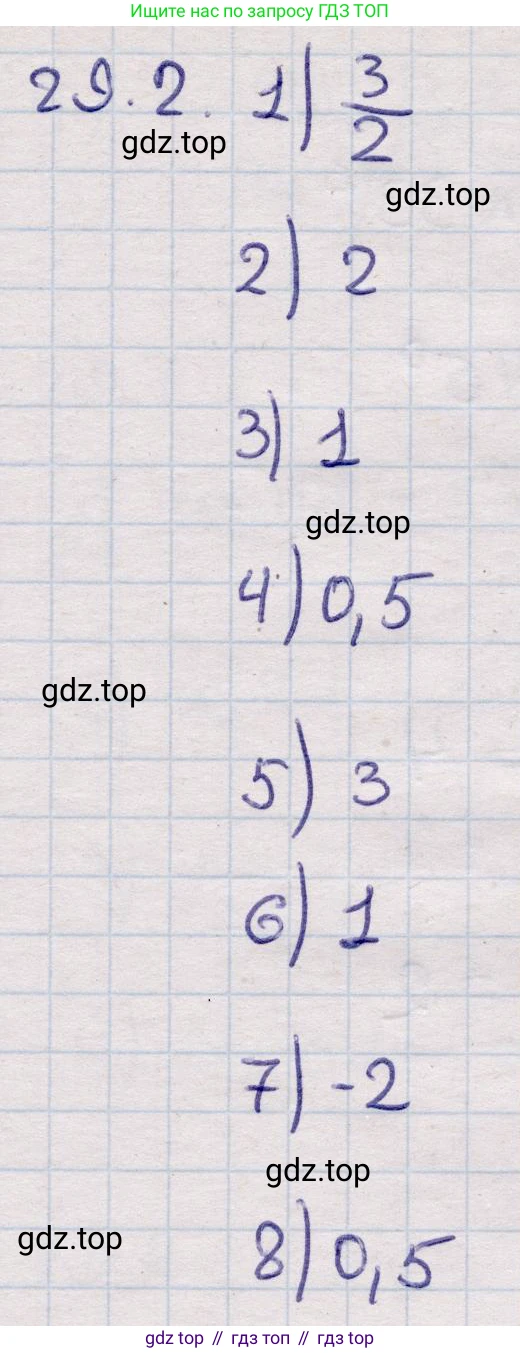 Ищите нас по запросу ГДЗ ТОП
29.2. 1) 3/2
gdz.top
gdz.top
2) 2
3) 1
gdz.top
4) 0,5
gdz.top
5) 3
6) 1
7) -2
gdz.top
gdz.top
8) 0,5
gdz top // гдз топ // gdz top